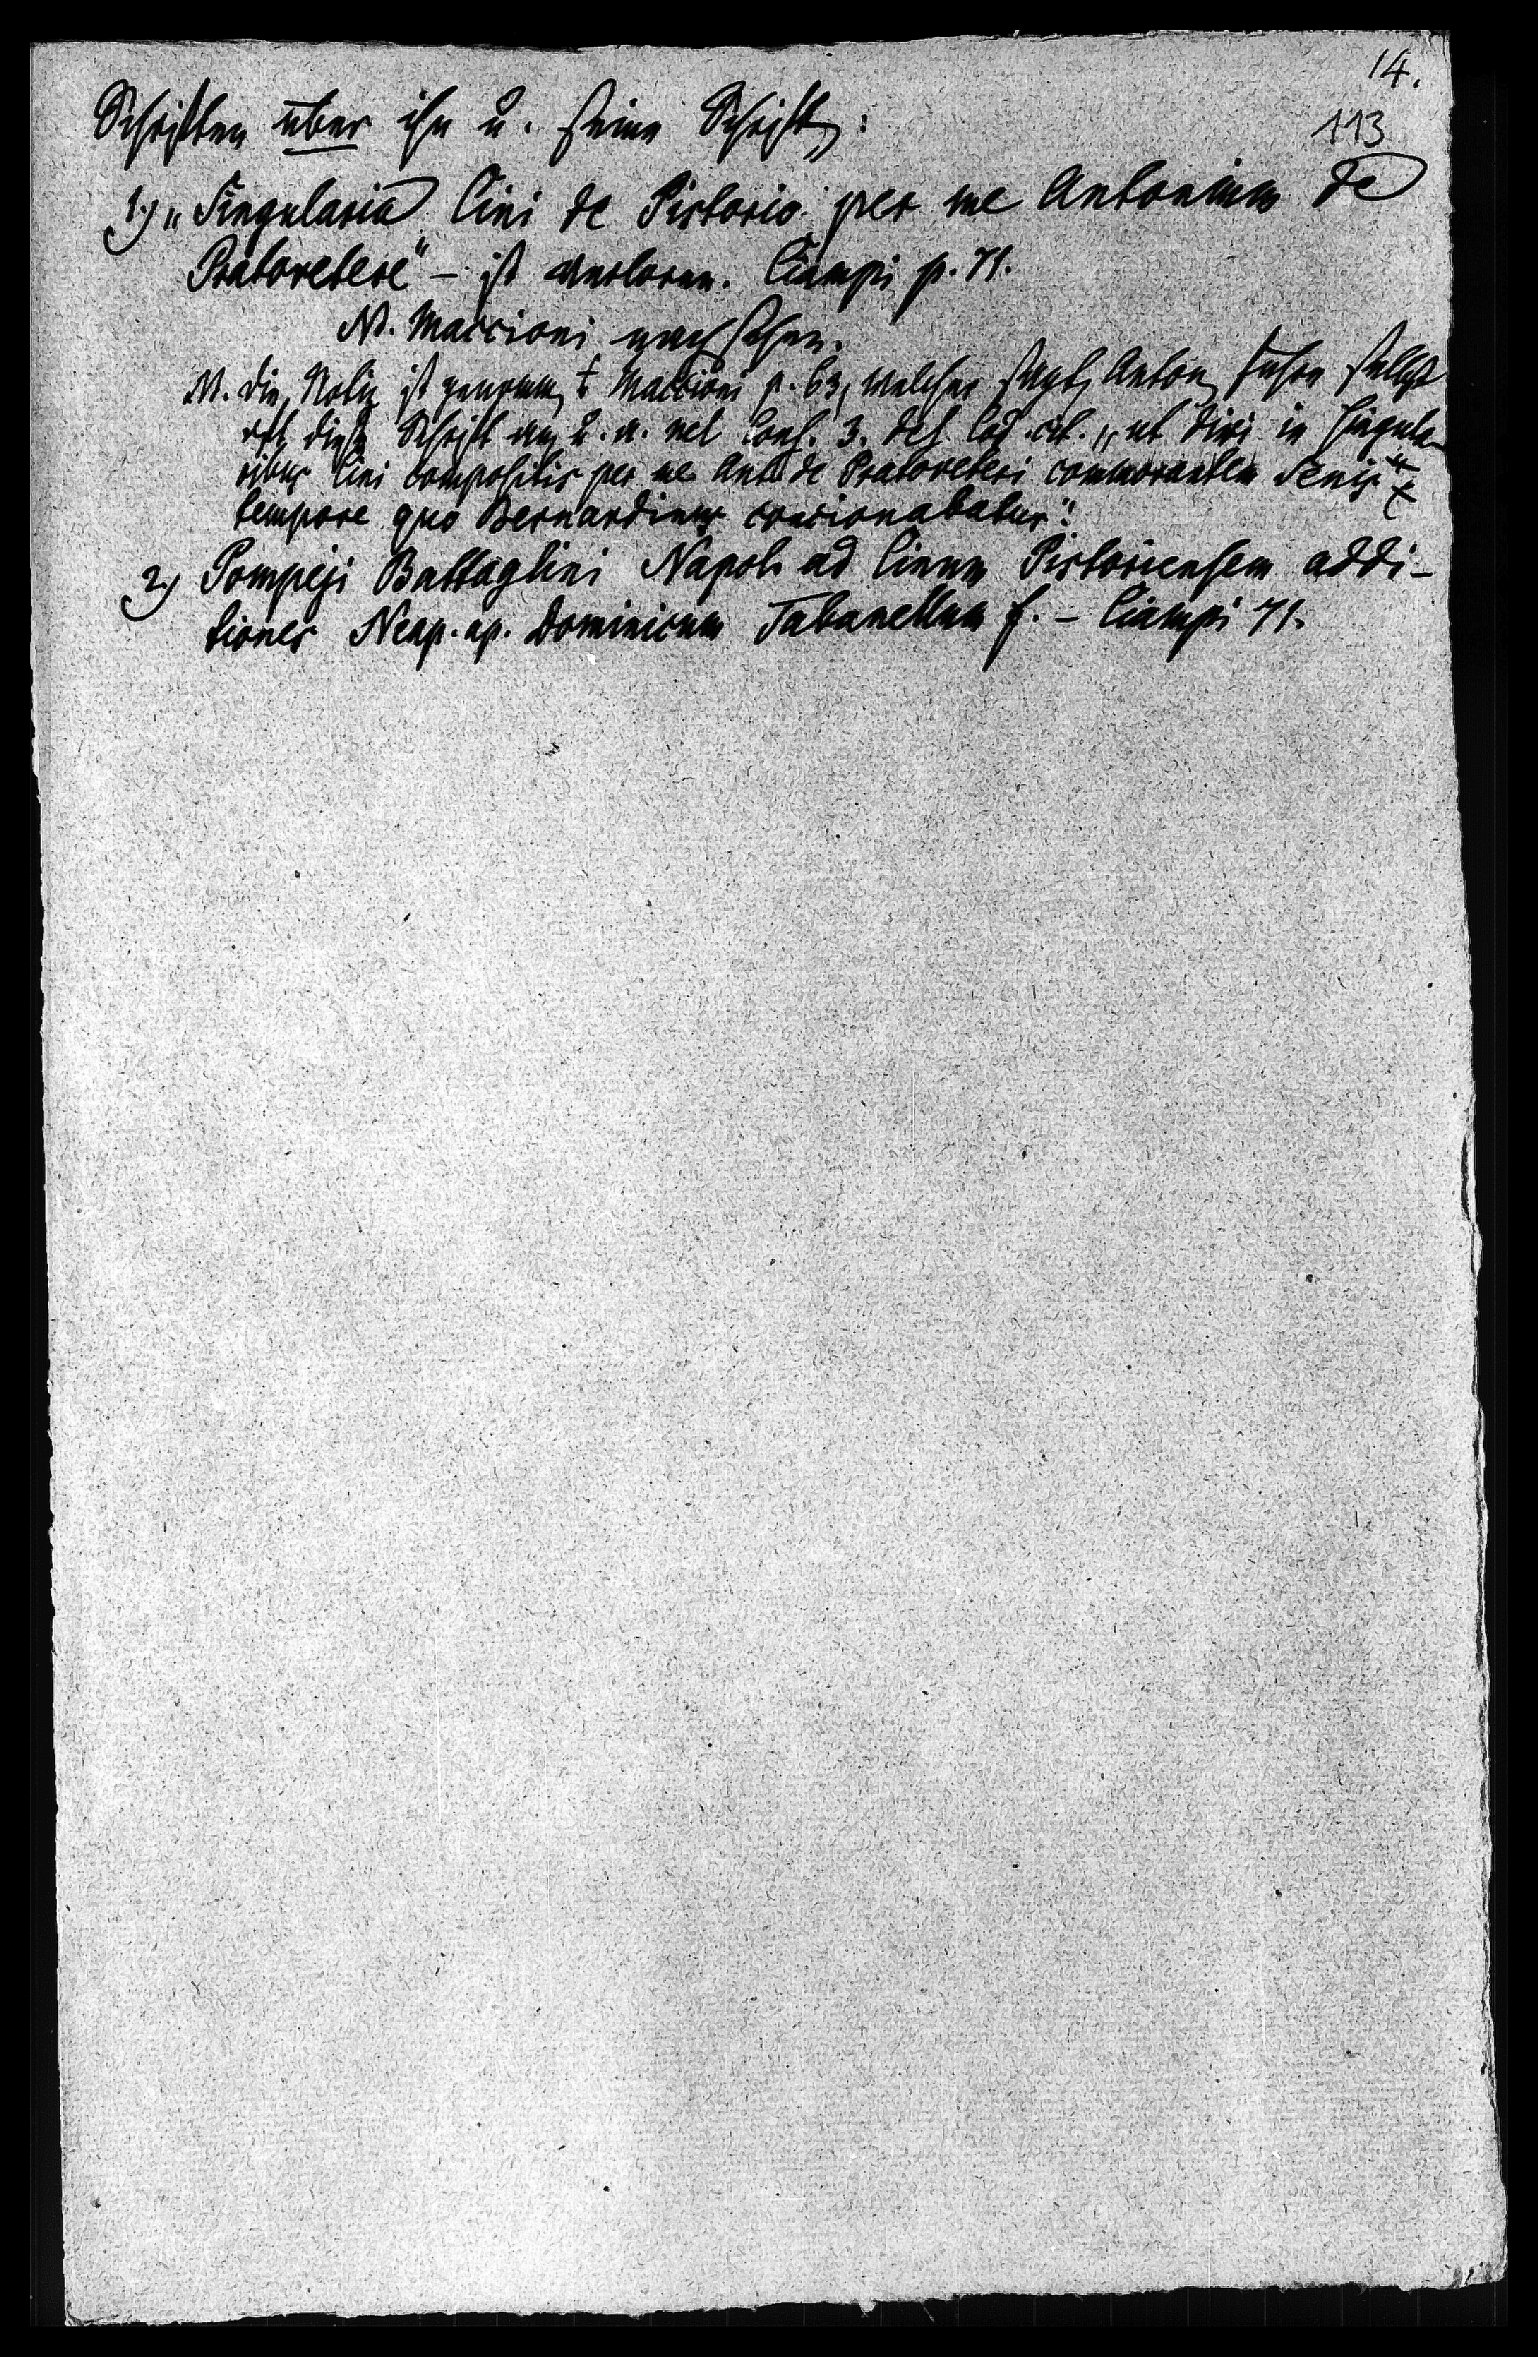 14.
113
Schriften über ihn u. seine Schriften:
1.) „Singularia Cini de Pistorio per me Antonium de
Pratovetere" – ist verloren. Ciampi p. 71.
N. Maccioni nachsehen.
N. Die Notiz ist genommen + Maccioni p. 63, welcher sagt, Anton führe selbst
oft diese Schrift an, u. a. nel Cons. 3. des Cod. cit. „ut dixi in singula-
ribus Cini compositis per me Ant. de Pratoveteri commorantem Senis" +
tempore quo Bernardinus cracionabatur".
2) Pompeji Battaglini Napol. ad Cinum Pistoriensem addi-
tiones Neap. ap. Dominicum Tabanellum f. – Ciampi 71.